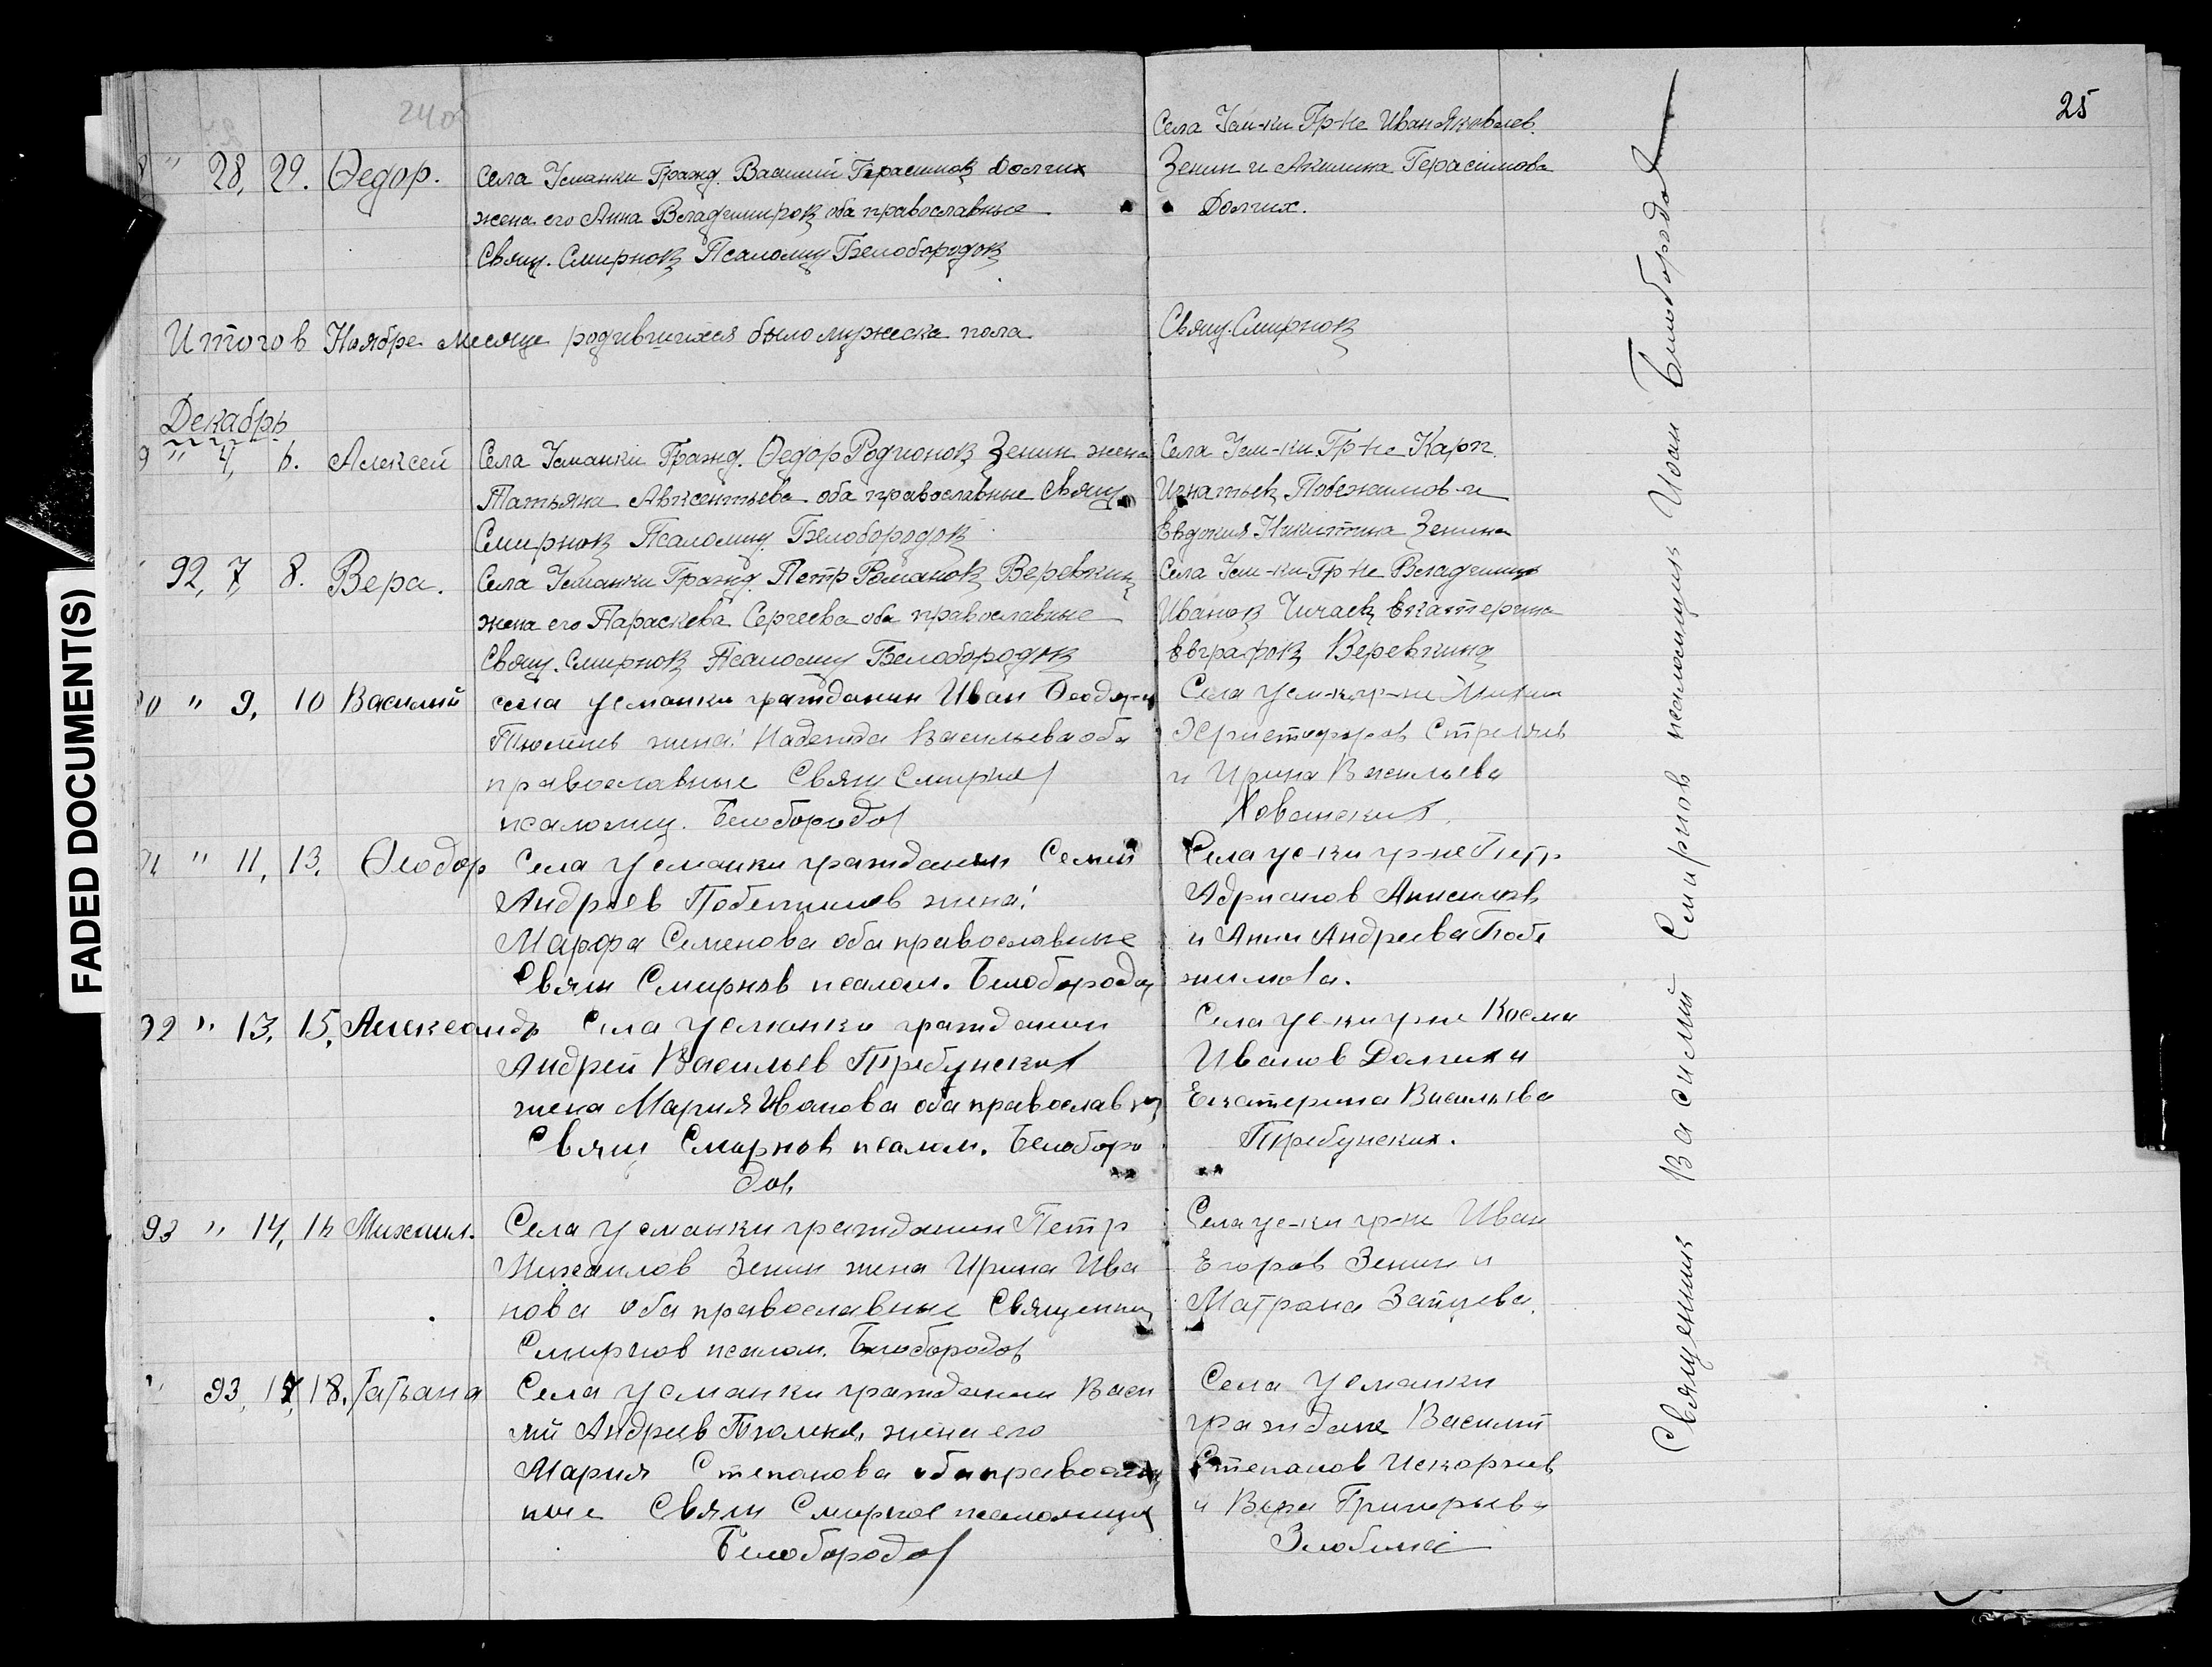 25
240
FADED DOCUMENT(S)
8 " 28, 29. Ѳедор. Села Усманки Гражд. Василий Герасимов Долгих
жена его Анна Владимиров оба православные
Свящ. Смирнов Псаломщ Белобородов
Села Усм-ки Гр-не Иван Яковлев.
Зенин и Акилина Герасимова
Долгих.
Итого в Ноябре месяце родившихся было мужеска пола
Свящ. Смирнов
Декабрь
9 " 4, 6. Алексей Села Усманки Гражд. Ѳедор Родионов Зенин жена
Татьяна Авксентьева оба православные Свящ
Смирнов Псаломщ. Белобородов
Села Усм-ки Гр-не Карп
Игнатьев Побежимов и
Евдокия Никитина Зенина
" 92, 7, 8. Вера. Села Усманки Гражд. Петр Романов Веревкин
жена его Параскева Сергеева оба православные
Свящ. Смирнов Псаломщ Белобородов
Села Усм-ки Гр-не Владимир
Иванов Чичаев Екатерина
Евграфов Веревкина
90 " 9, 10 Василий села Усманки гражданин Иван Ѳеодор-в
жена: Надежда Васильева оба
православные Свящ Смирнов
псаломщ. Белобородов
Села Усм-к гр-не
Христофоров Стрелков
и Ирина Васильева
Хованских.
91 " 11, 13. Ѳеодор Села Усманки гражданин Семен
Андреев Побежимов жена:
Марфа Семенова оба православные
Свящ Смирнов псалом. Белобородов
Села Ус-ки гр-не Петр
Адрианов Анисимов
и Анна Андреева Побе
жимова.
92 " 13, 15, Александр Села Усманки гражданин
Андрей Васильев Требунских
жена Мария Иванова оба православн
Свящ Смирнов псалом. Белоборо
дов.
Села Ус-ки гр-не Косма
Иванов Долгих и
Екатерина Васильева
Требунских.
93 " 14, 16 Михаил. Села Усманки гражданин Петр
Михаилов Зенин жена Ирина Ива
нова оба православные Священник
Смирнов псалом. Белобородов
Села Ус-ки гр-не Иван
Егоров Зенин и
Матрона Зайцева.
" 93, 17, 18. Татьана Села Усманки гражданин Васи
лий Андреев жена его
Мария Степанова оба православ
ные Свящ Смирнов псаломщик
Белобородов
Села Усманки
граждане Василий
Степанов
и Вера Григорьев-а
Злобина
Священник Василий Смирнов псаломщик Иоан Белобородов